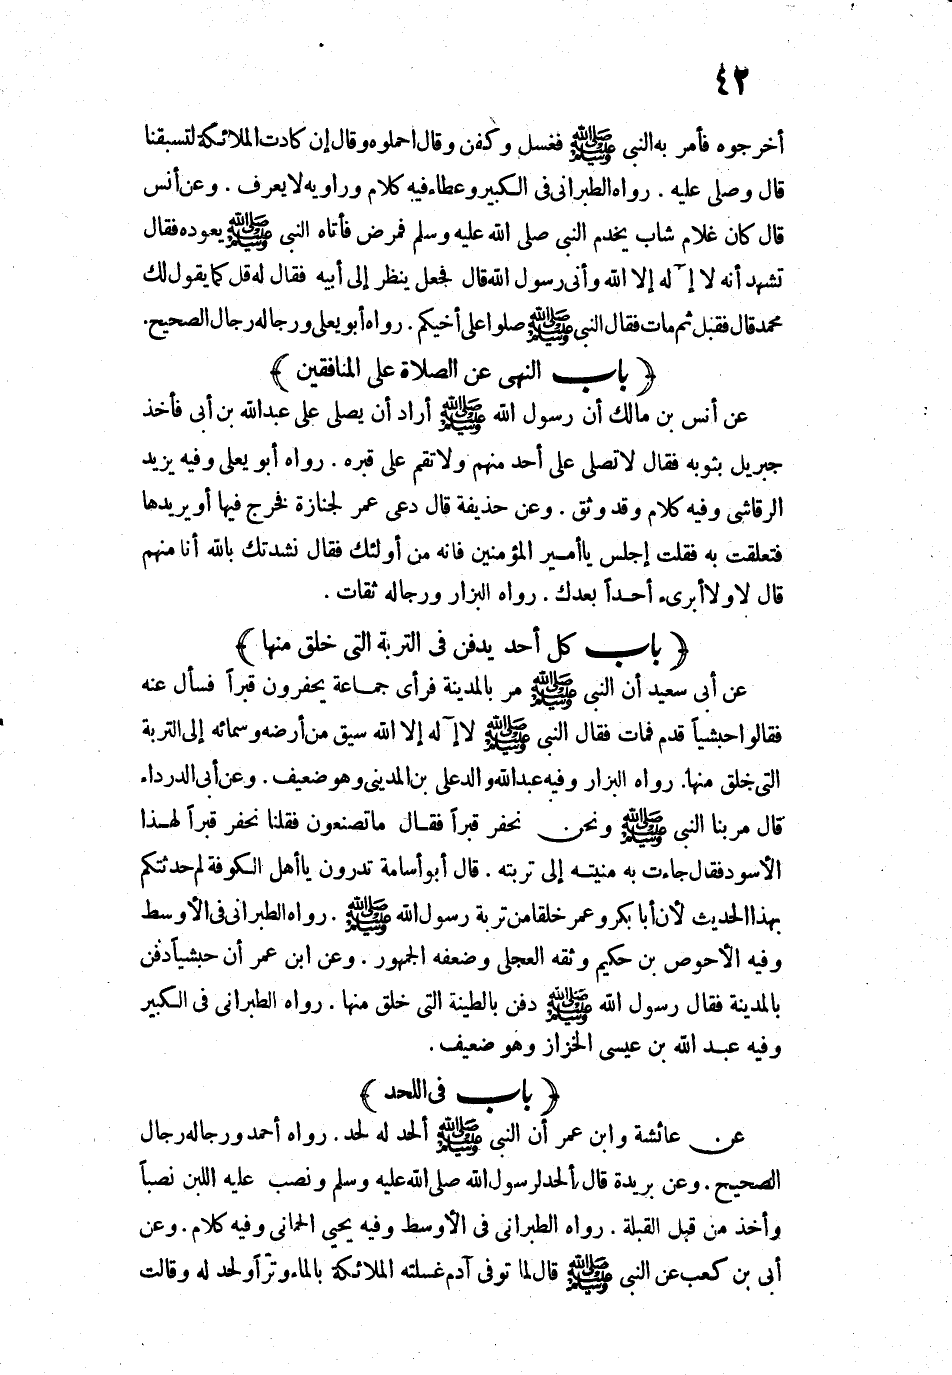 ٤٢
أخرجوه فأمر به النبى ﷺ فغسل وكفن وقال احملوه وقال إن كادت الملائكة لتسبقنا
قال وصلى عليه . رواه الطبرانى فى الكبير وعطاء فيه كلام وراويه لا يعرف . وعن أنس
قال كان غلام شاب يخدم النبى صلى الله عليه وسلم فمرض فأتاه النبى ﷺ يعوده فقال
تشهد أنه لا إله إلا الله وأنى رسول الله قال فجعل ينظر إلى أبيه فقال له قل كما يقول لك
محمد قال فقبل ثم مات فقال النبى ﷺ صلوا على أخيكم . رواه أبو يعلى ورجاله رجال الصحيح .
﴿ باب النهى عن الصلاة على المنافقين ﴾
عن أنس بن مالك أن رسول الله ﷺ أراد أن يصلى على عبدالله بن أبى فأخذ
جبريل بثوبه فقال لا تصلى على أحد منهم ولا تقم على قبره . رواه أبو يعلى وفيه يزيد
الرقاشى وفيه كلام وقد وثق . وعن حذيفة قال دعى عمر لجنازة فخرج فيها أو يريدها
فتعلقت به فقلت إجلس يا أمير المؤمنين فانه من أولئك فقال نشدتك بالله أنا منهم
قال لا ولا أبرىء أحداً بعدك . رواه البزار ورجاله ثقات .
﴿ باب كل أحد يدفن فى التربة التى خلق منها ﴾
عن أبى سعيد أن النبى ﷺ مر بالمدينة فرأى جماعة يحفرون قبراً فسأل عنه
فقالوا حبشياً قدم فمات فقال النبى ﷺ لا إله إلا الله سيق من أرضه وسمائه إلى التربة
التى خلق منها. رواه البزار وفيه عبدالله والد على بن المدينى وهو ضعيف . وعن أبى الدرداء
قال مر بنا النبى ﷺ ونحن نحفر قبراً فقال ما تصنعون فقلنا نحفر قبراً لهذا
الأسود فقال جاءت به منيته إلى تربته . قال أبو أسامة تدرون يا أهل الكوفة لم حدثتكم
بهذا الحديث لأن أبا بكر وعمر خلقا من تربة رسول الله ﷺ . رواه الطبرانى فى الأوسط
وفيه الأحوص بن حكيم وثقه العجلى وضعفه الجمهور . وعن ابن عمر أن حبشياً دفن
بالمدينة فقال رسول الله ﷺ دفن بالطينة التى خلق منها . رواه الطبرانى فى الكبير
وفيه عبد الله بن عيسى الخزاز وهو ضعيف .
﴿ باب فى اللحد ﴾
عن عائشة وابن عمر أن النبى ﷺ ألحد له لحد . رواه أحمد ورجاله رجال
الصحيح . وعن بريدة قال ألحد لرسول الله صلى الله عليه وسلم ونصب عليه اللبن نصباً
وأخذ من قبل القبلة . رواه الطبرانى فى الأوسط وفيه يحيى الحمانى وفيه كلام . وعن
أبى بن كعب عن النبى ﷺ قال لما توفى آدم غسلته الملائكة بالماء وتراً ولحد له وقالت